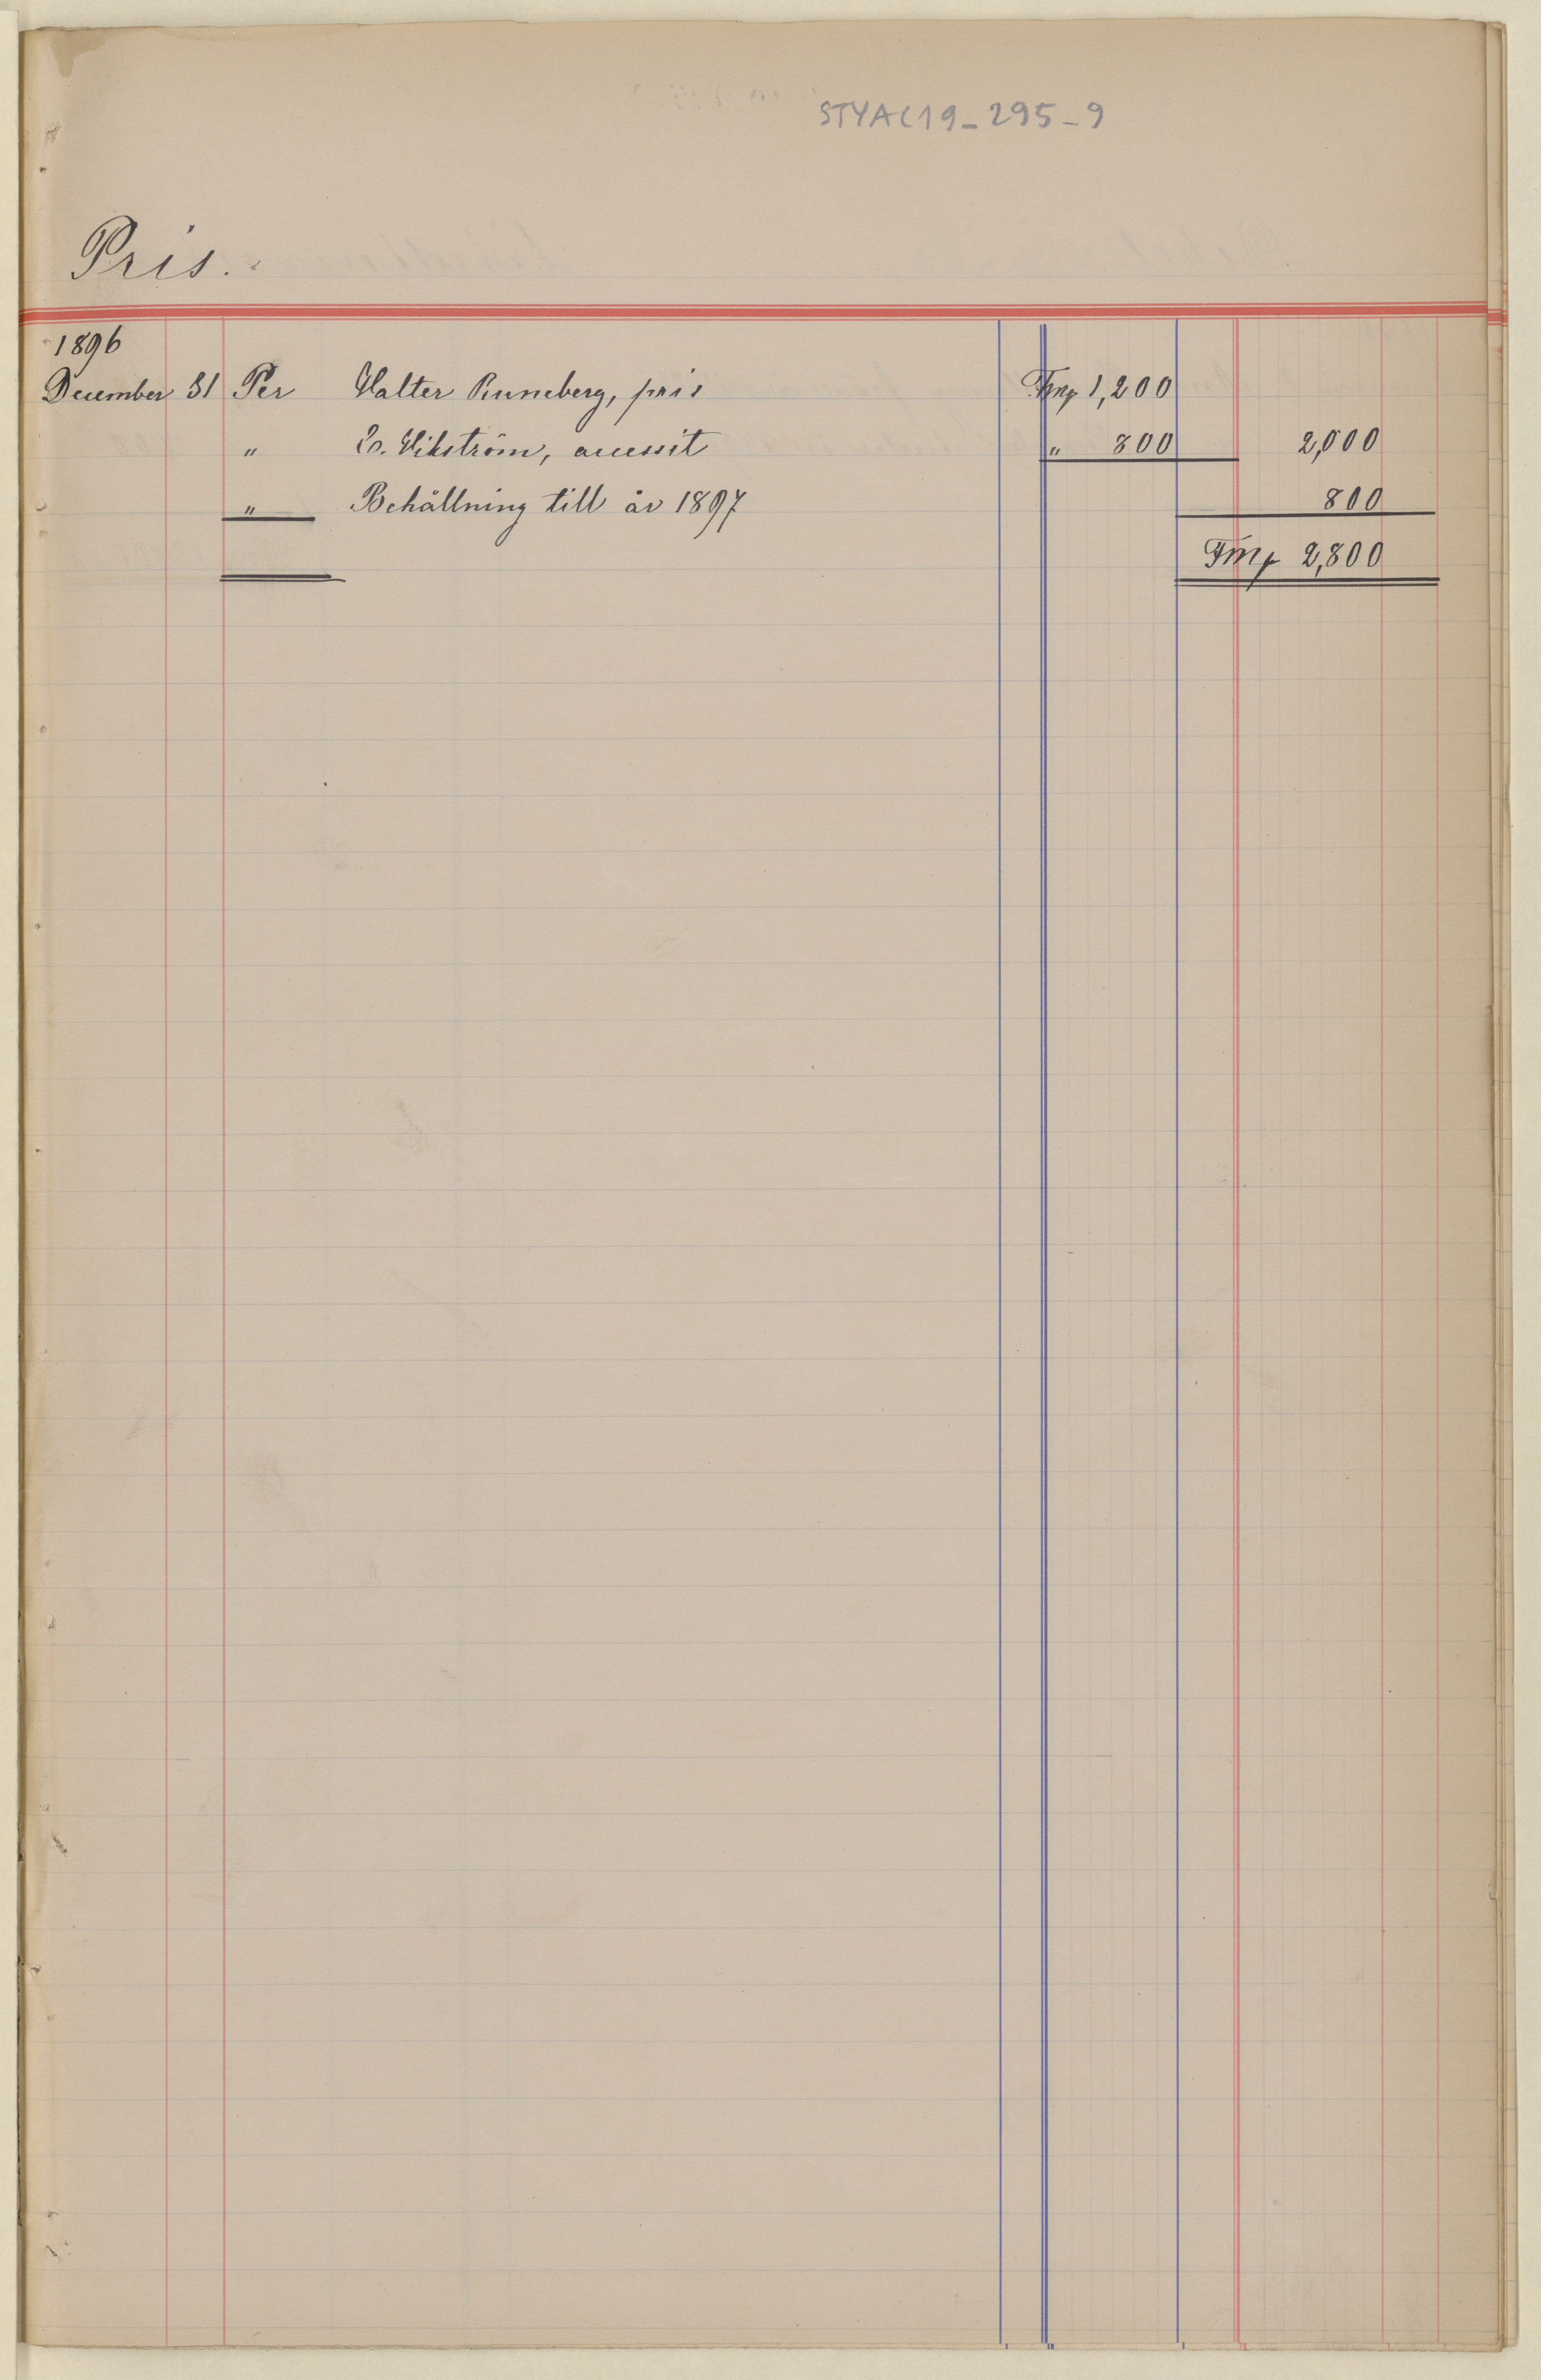 STYAC19_295_9
Pris.
1896
December 31 Per Walter Runeberg, pris Fmk 1,200
" E. Wikström, accessit " 800 2,000
" Behållning till år 1897 800
Fmk 2,800